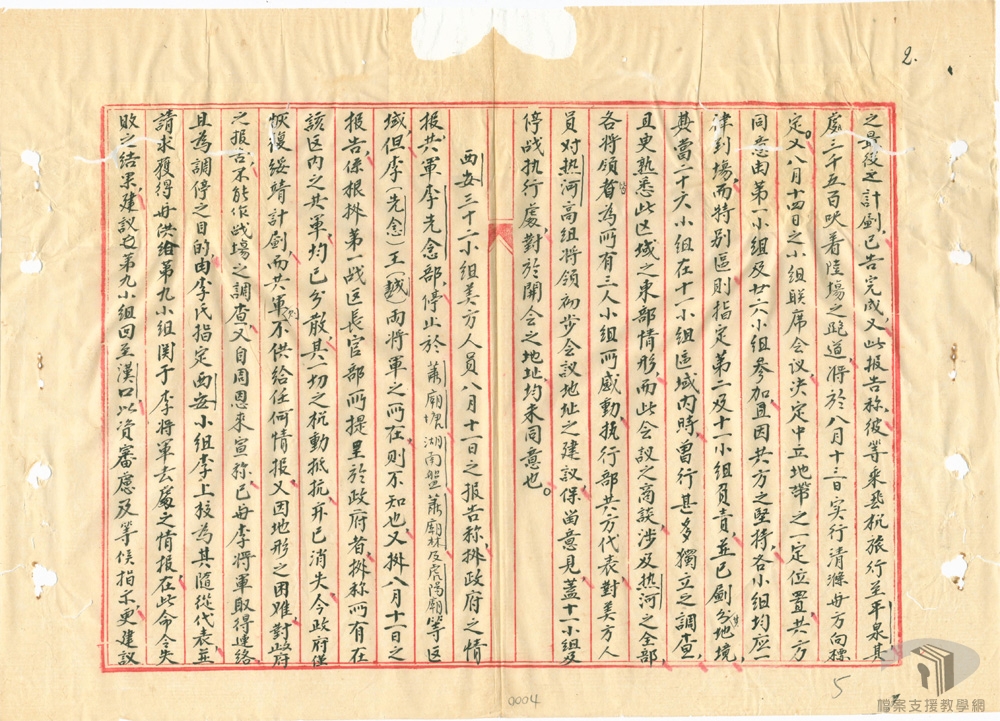 2.
之最後之計劃已告完成又此报告称彼等乘飛机旅行至平泉其
處三千五百呎着陸場之跑道將於八月十三日实行清滌毋方向標
定。又八月十四日之小組联席会议决定中立地帶之一定位置共方
同意由第一小組及廿六小組参加且因共方之堅持各小組均应一
律到場。而特别區則指定第二及十一小組負責並已劃分地境,
其當二十六小組在十一小組區域内時,曾行甚多獨立之調查,
且史熟悉此区域之東部情形,而此会议之商谈,涉及热河之全部
各將領皆為所有三人小組所感動,执行部共方代表對美方人
員对热河高組將領初步会議地址之建议保留意見,蓋十一小組及
停战执行處,對於開会之地址均未同意也。
西安三十二小組美方人員八月十一日之报告称据政府之情
报共軍李先念部,停止於蕭廟壊湖南盤蕭廟林及虎陽廟等区
域,但李(先念)王(越)两將軍之所在,則不知也,又据八月十一日之
报告,係根据第一战区長官部所提呈於政府者据称所有在
該区内之共軍,均已分散其一切之抗動抵抗并已消失今政府僅
恢復綏靖計劃,而共軍則不供给任何情报,又因地形之困难,對政府
之报告,不能作战場之調查又自周恩来宣称,已毋李將軍取得連络
且為調停之目的,由李氏指定西安小組李上校為其随從代表並
請求獲得毋供给第九小組関于李將軍去處之情报在此命令失
敗之结果,建议也第九小組回至漢口以資審慮及等候指示更建议
0004
5
檔案支援教學網